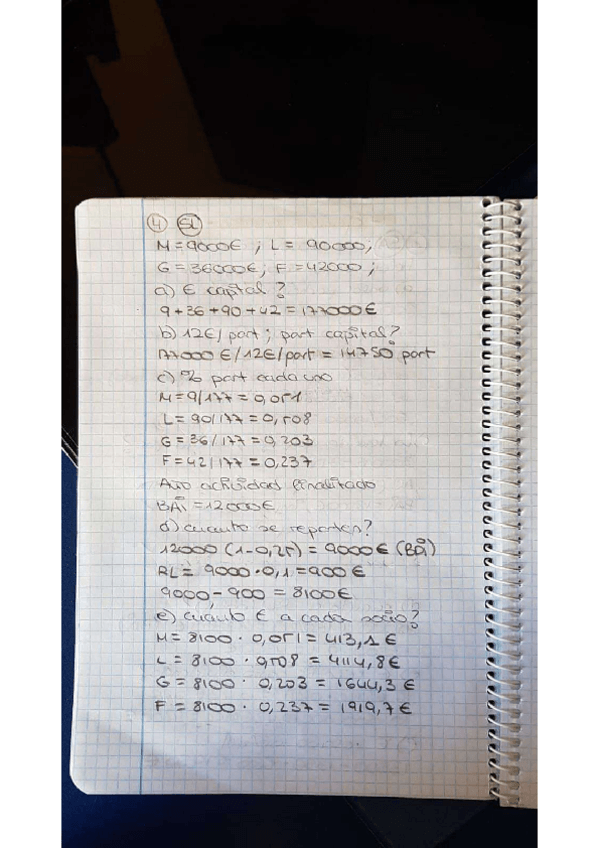 4 SL
M = 9000€ ; L = 90000;
G = 36000€; F = 42000;
a) € capital?
9 + 36 + 90 + 42 = 177000€
b) 12€/part; part capital?
177000 €/12€/part = 14750 part
c) % part cada uno
M = 9/177 = 0,051
L = 90/177 = 0,508
G = 36/177 = 0,203
F = 42/177 = 0,237
Año actividad finalitado
BAI = 12000€
d) cuanto se reparten?
12000 (1-0,25) = 9000€ (BDI)
RL = 9000·0,1 = 900€
9000 - 900 = 8100€
e) cuánto € a cada socio?
M = 8100 · 0,051 = 413,1 €
L = 8100 · 0,508 = 4114,8€
G = 8100 · 0,203 = 1644,3 €
F = 8100 · 0,237 = 1919,7€